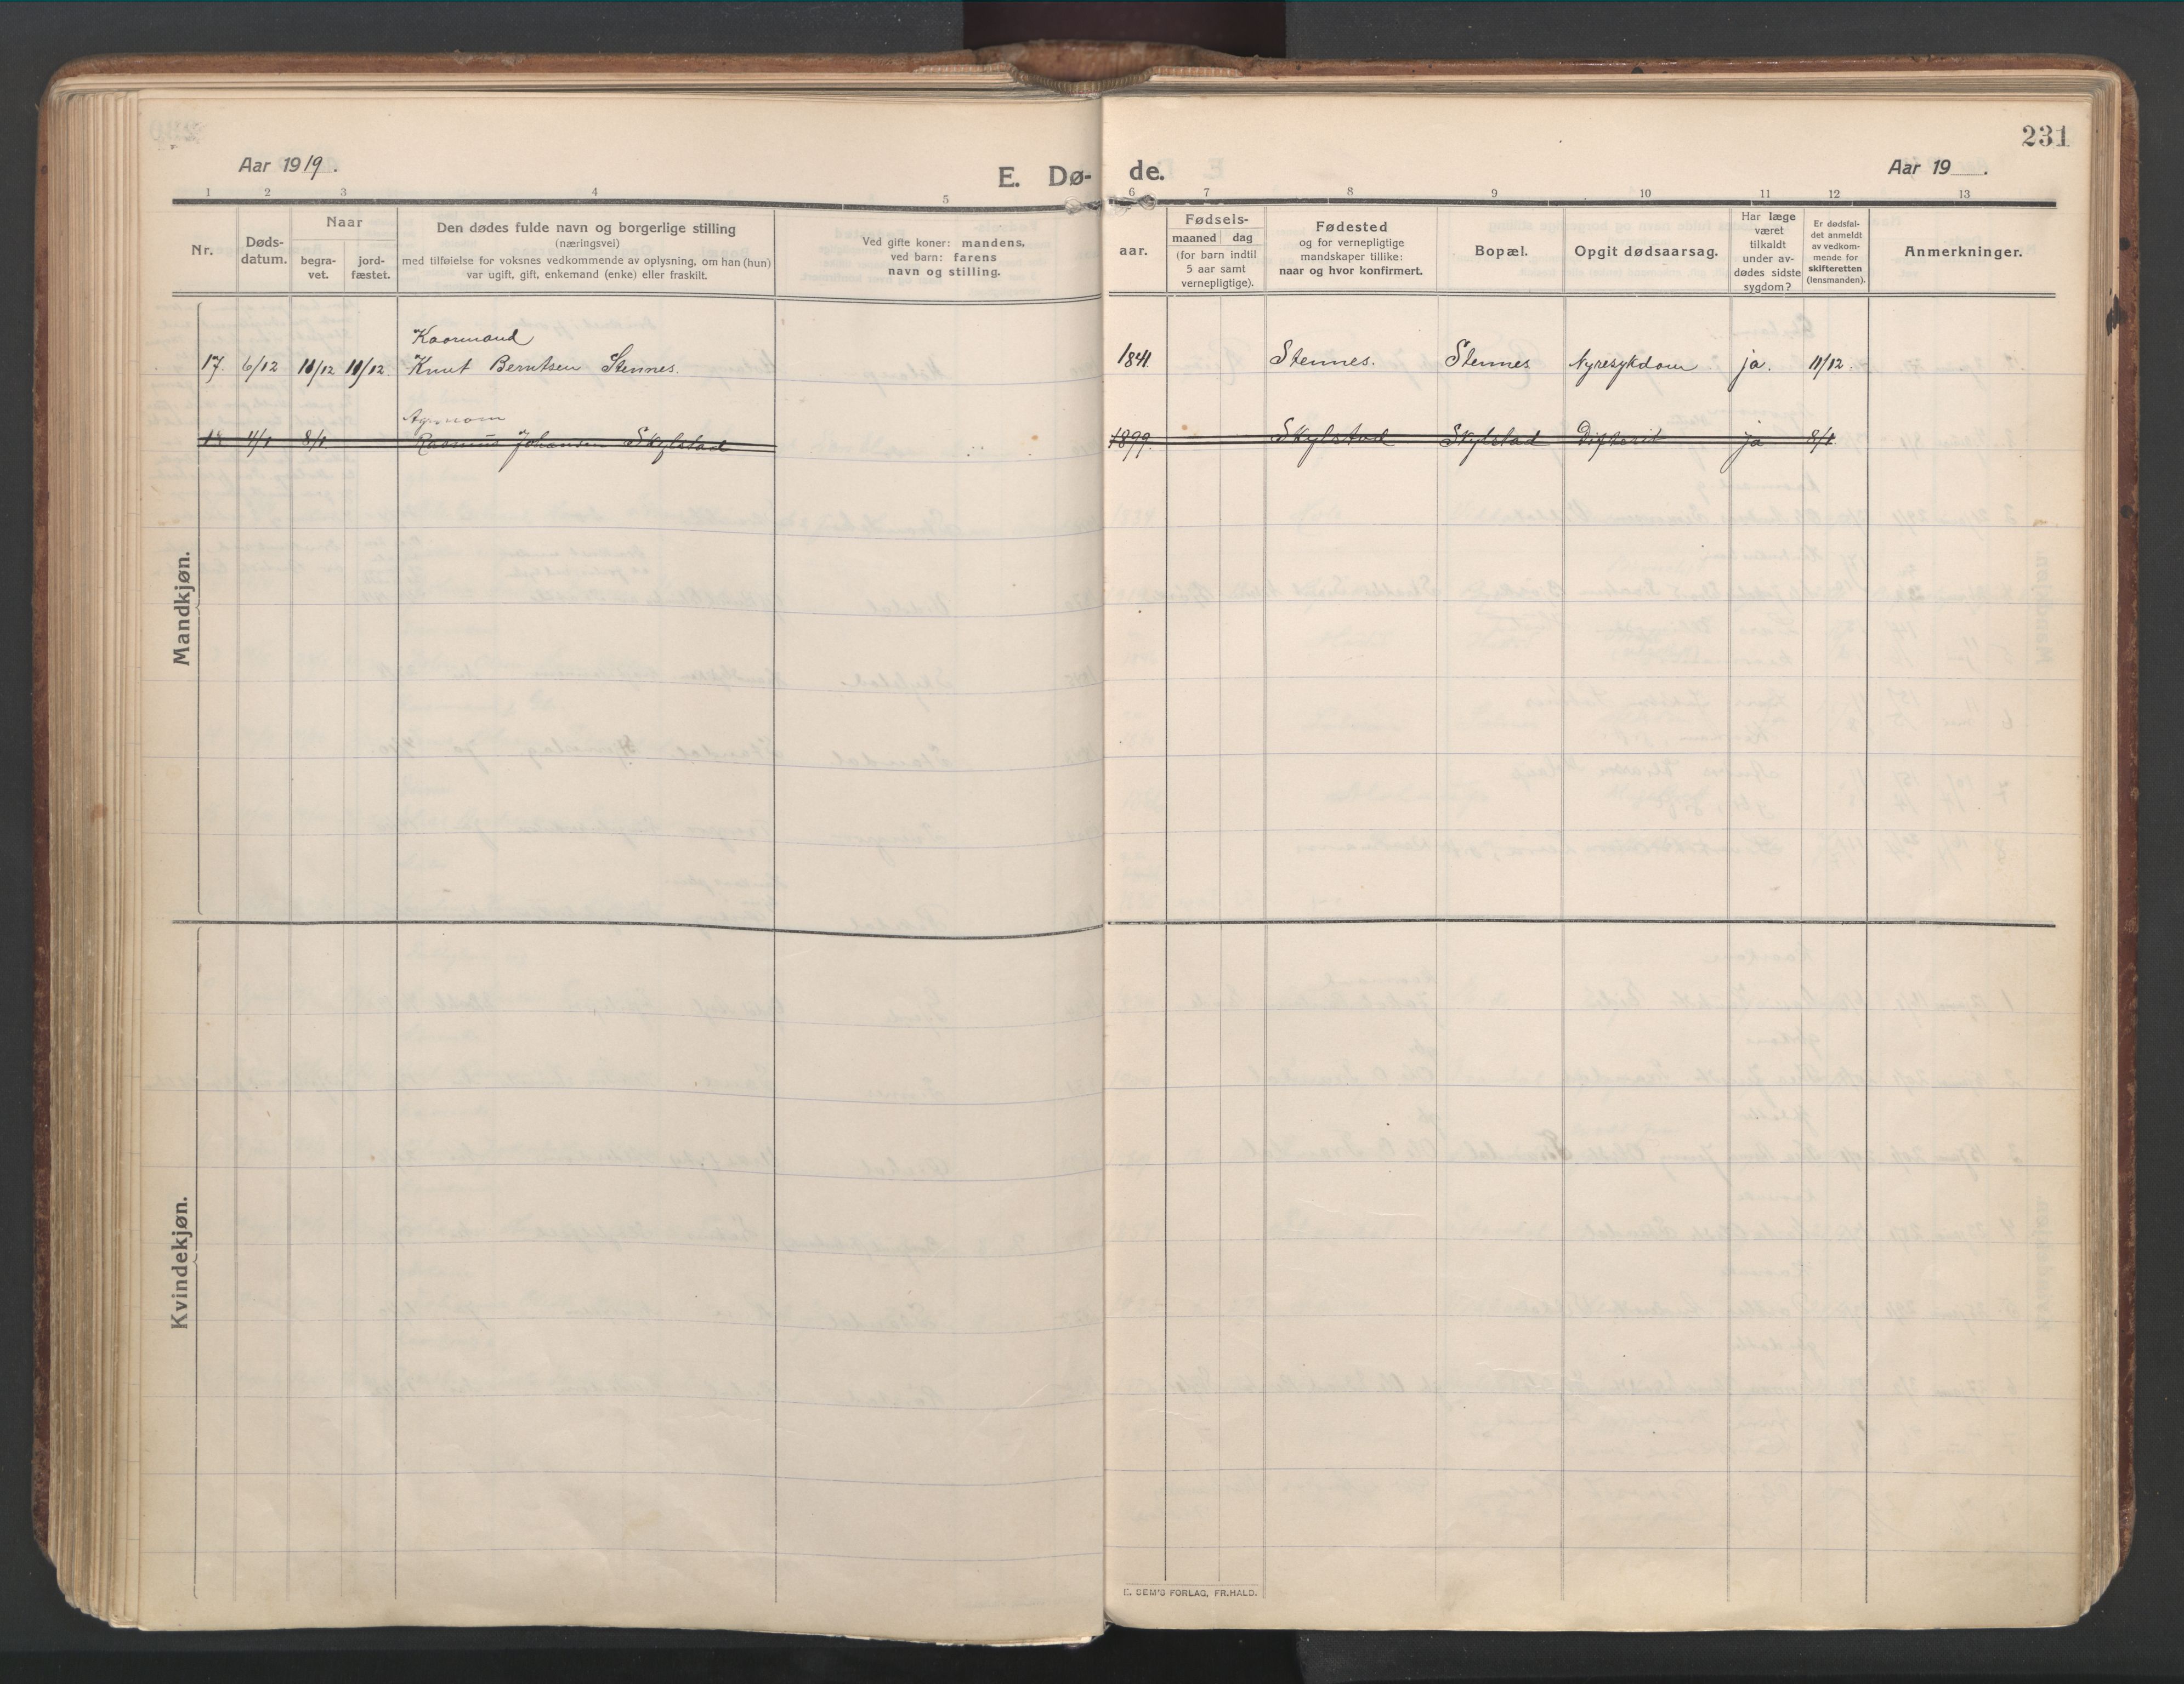 231
Aar 1919.
E. Dø-
de.
Aar 19 .
1 2 3 4 5 6 7 8 9 10 11 12 13
Nr.
Døds-
datum.
Naar
begra-
vet.
jord-
fæstet.
Den dødes fulde navn og borgerlige stilling
(næringsvei)
med tilføielse for voksnes vedkommende av oplysning, om han (hun)
var ugift, gift, enkemand (enke) eller fraskilt.
Ved gifte koner: mandens,
ved barn: farens
navn og stilling.
aar.
Fødsels-
maaned dag
(for barn indtil
5 aar samt
vernepligtige).
Fødested
og for vernepligtige
mandskaper tillike:
naar og hvor konfirmert.
Bopæl.
Opgit dødsaarsag.
Har læge
været
tilkaldt
under av-
dødes sidste
sygdom?
Er dødsfal-
det anmeldt
av vedkom-
mende for
skifteretten
(lensmanden).
Anmerkninger.
Mandkjøn.
Kaarmand
17. 6/12 10/12 10/12 Knut Berntsen Stennes. 1841. Stennes. Stennes Nyresykdom ja. 11/12.
Agronom
18 4/1 8/1 Rasmus Johansen Skylstad 1899. Skylstad Skylstad Difterit ja 8/1
Kvindekjøn.
E. SEM'S FORLAG, FR.HALD.